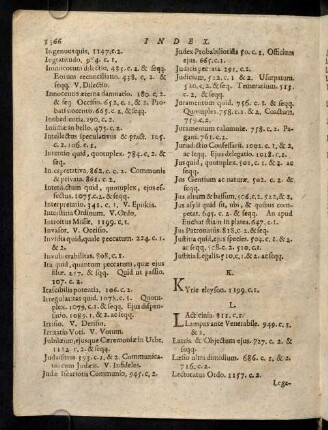 1366 INDEX.
Ingenuus quis, 1147. c. 2.
Ingratitudo, 984. c. 1.
Innocentum dilectio, 485. c. 2. & seqq.
Eorum reconciliatio. 438. c, 2. &
seqq. V. Dilectio.
Innocentis æterna damnatio. 180. c. 2.
& seq Occisio. 652. c. 1. & 2. Pro-
batio 665. c. 2. & seqq.
Inobedientia. 190. c. 2.
Inimicæ in bello, 475. c. 2.
Intellectus speculativus & pract. 105.
c. 2. 106. c. 1.
Intentio quid, quotuplex. 784. c. 2. &
seqq.
Interpretativa. 862. c. 2. Communis
& privata. 861. c. 2.
Interdictum quid, quotuplex, ejus ef-
fectus. 1075. c. 2. & seqq.
Interpretatio. 341. c. 1. V. Epiicia.
Interstitia Ordinum. V. Ordo.
Introitus Missæ. 1199. c. 1.
Invasor. V. Occisio.
Invidia quid, quale peccatum. 224. c. 1.
& 2.
Invulnerabilitas. 908. c. 1.
Ira quid, quantum peccatum quæ ejus
filiæ. 217. & sqq. Quid ut passio.
107. c. 2.
Irascibilis potentia. 106. c. 2.
Irregularitas quid. 1078. c. 1. Quotu-
plex. 1079. c. 1. & seqq. Ejus dispen-
satio. 1085. 1. & 2. ac seqq.
Irrisio. V. Derisio.
Irritatio Voti. V. Votum.
Jubilæum, ejusque Cæremoniæ in Urbe.
1112. 1. 2. & seqq.
Judaismus. 193. c. 1. & 2. Communica-
tio cum Judæis. V. Infideles.
Judæ Iscariotis Communio, 945. c. 2.
Judex Probabiliorista 50. c. 1. Officium
ejus. 665. c. 1.
Judicis peccata 291. c. 2.
Judicium, 512. c. 1. & 2. Usurpatum.
510. c. 2. & seq. Temerarium. 515.
c. 2. & seqq.
Juramentum quid. 756. c. 1. & seqq.
Quotuplex. 758. c. 1. & 2. Coactum.
759. c. 2.
Juramentum calumniæ. 758. c. 2. Pa-
gani. 761. c. 2.
Jurisdictio Confessarii. 1002. c. 1, & 2.
ac seqq. Ejus delegatio. 1018. c. 1.
Jus quid, quotuplex. 501. c. 1. & 2. ac
seqq.
Jus Gentium ac naturæ. 502. c. 2. &
seqq.
Jus altum & bassum, 506. c. 2. 512. & 2.
Jus asyli quid sit, ubi, & quibus com-
petat. 649. c. 2. & seq. An apud
Invictas etiam in platea. 647. c. 1.
Jus Patronatus. 818. c. 2. & seqq.
Justitia quid, ejus species. 504. c. 1. & 2.
ac seqq. 508. c. 2. 510. c. 1.
Justitia Legalis. 510. c. 1. & 2. ac seqq.
K.
Kyrie eleyson. 1199. c. 1.
L.
Lacticinia. 811. c. 1.
Lampas ante Venerabile. 949. c. 1.
& 2.
Latriæ & Objectum ejus. 727. c. 2. &
seqq.
Læsio ultra dimidium. 686. c. 1. & 2.
716. c. 2.
Lectoratus Ordo. 1157. c. 2.
Lega-